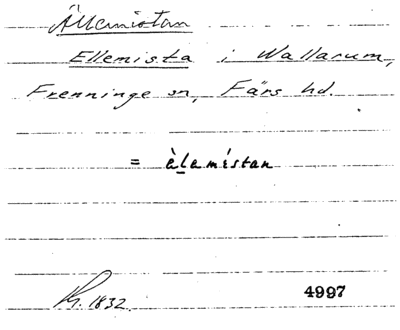 Ällemistan
Ellemista i Wallarum,
Frenninge sn, Färs hd.
= àlemístan
Kr. 1832. 4997